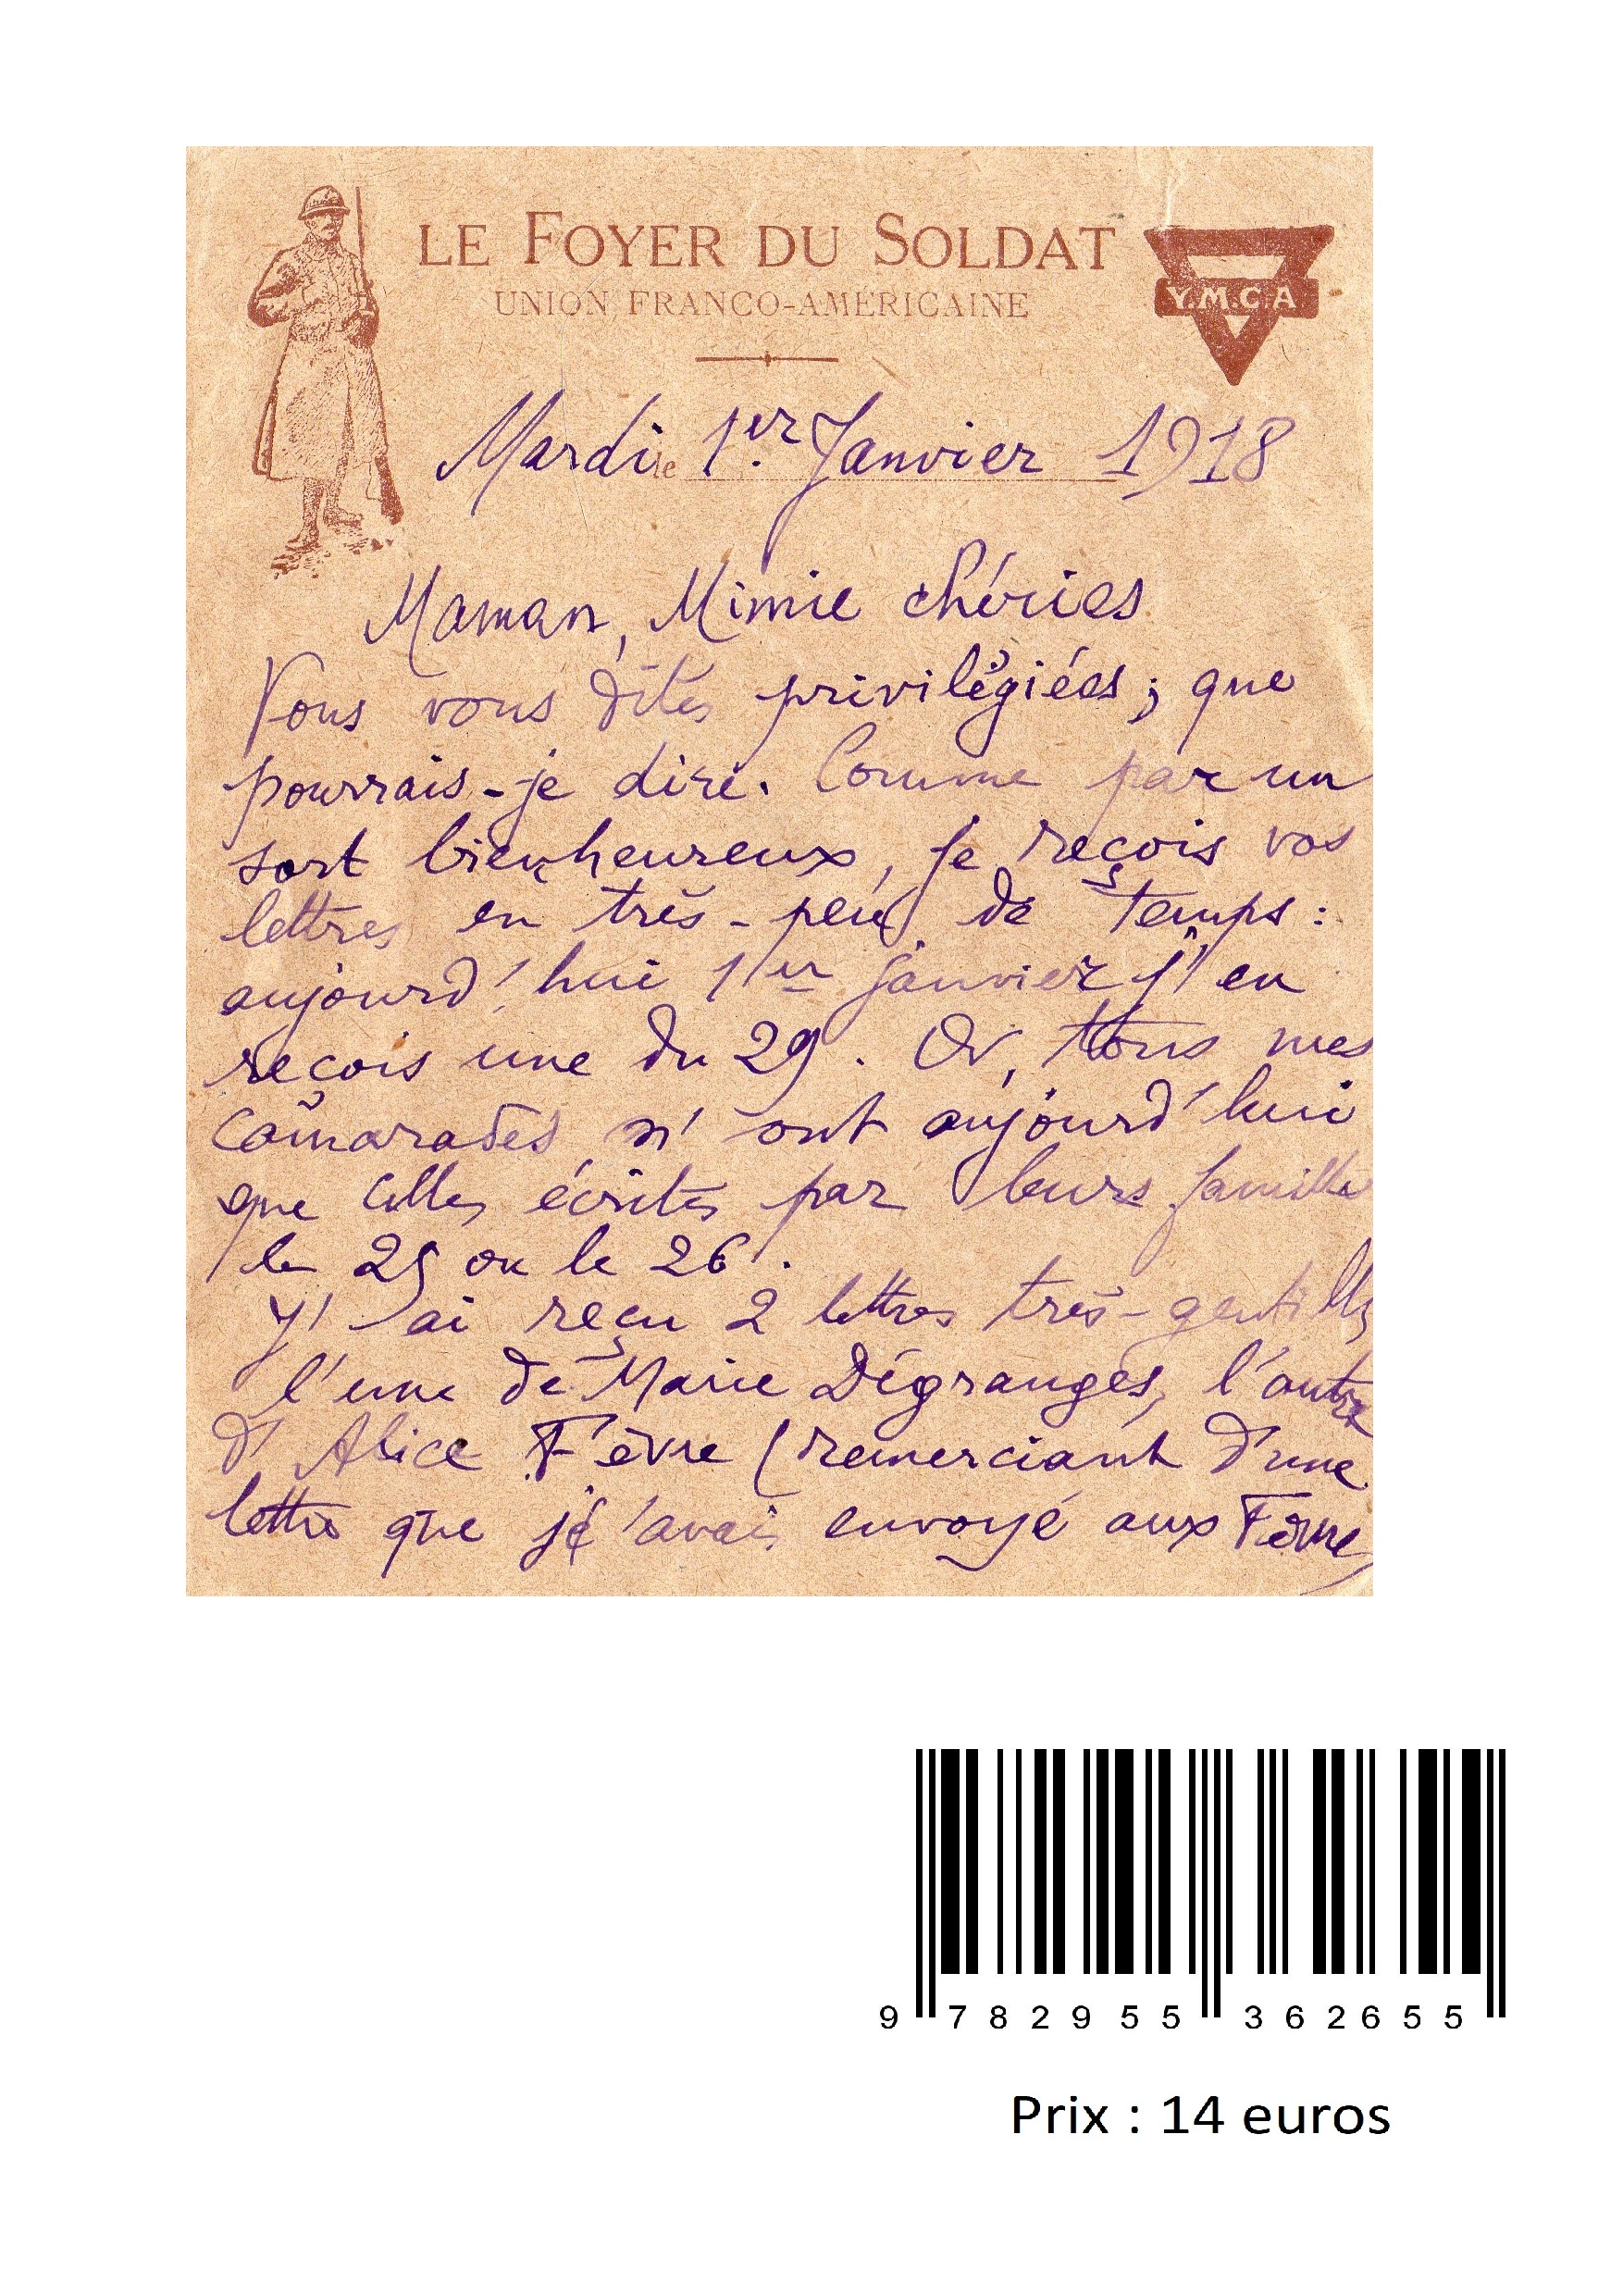 LE FOYER DU SOLDAT
UNION FRANCO-AMÉRICAINE
Y.M.C.A
Mardi le 1er Janvier 1918
Maman, Mimie chéries
Vous vous dîtes privilégiées ; que
pourrais-je dire. Comme par un
sort bienheureux, je reçois vos
lettres en très-peu de temps :
aujourd'hui 1er janvier j'en
reçois une du 29. Or, tous mes
camarades n'ont aujourd'hui
que celles écrites par leurs famille
le 25 ou le 26.
J'ai reçu 2 lettres très-gentilles
l'une de Marie Dégranges, l'autre
d'Alice Fèvre (remerciant d'une
lettre que j'avais envoyé aux Fèvre)
9 782955 362655
Prix : 14 euros